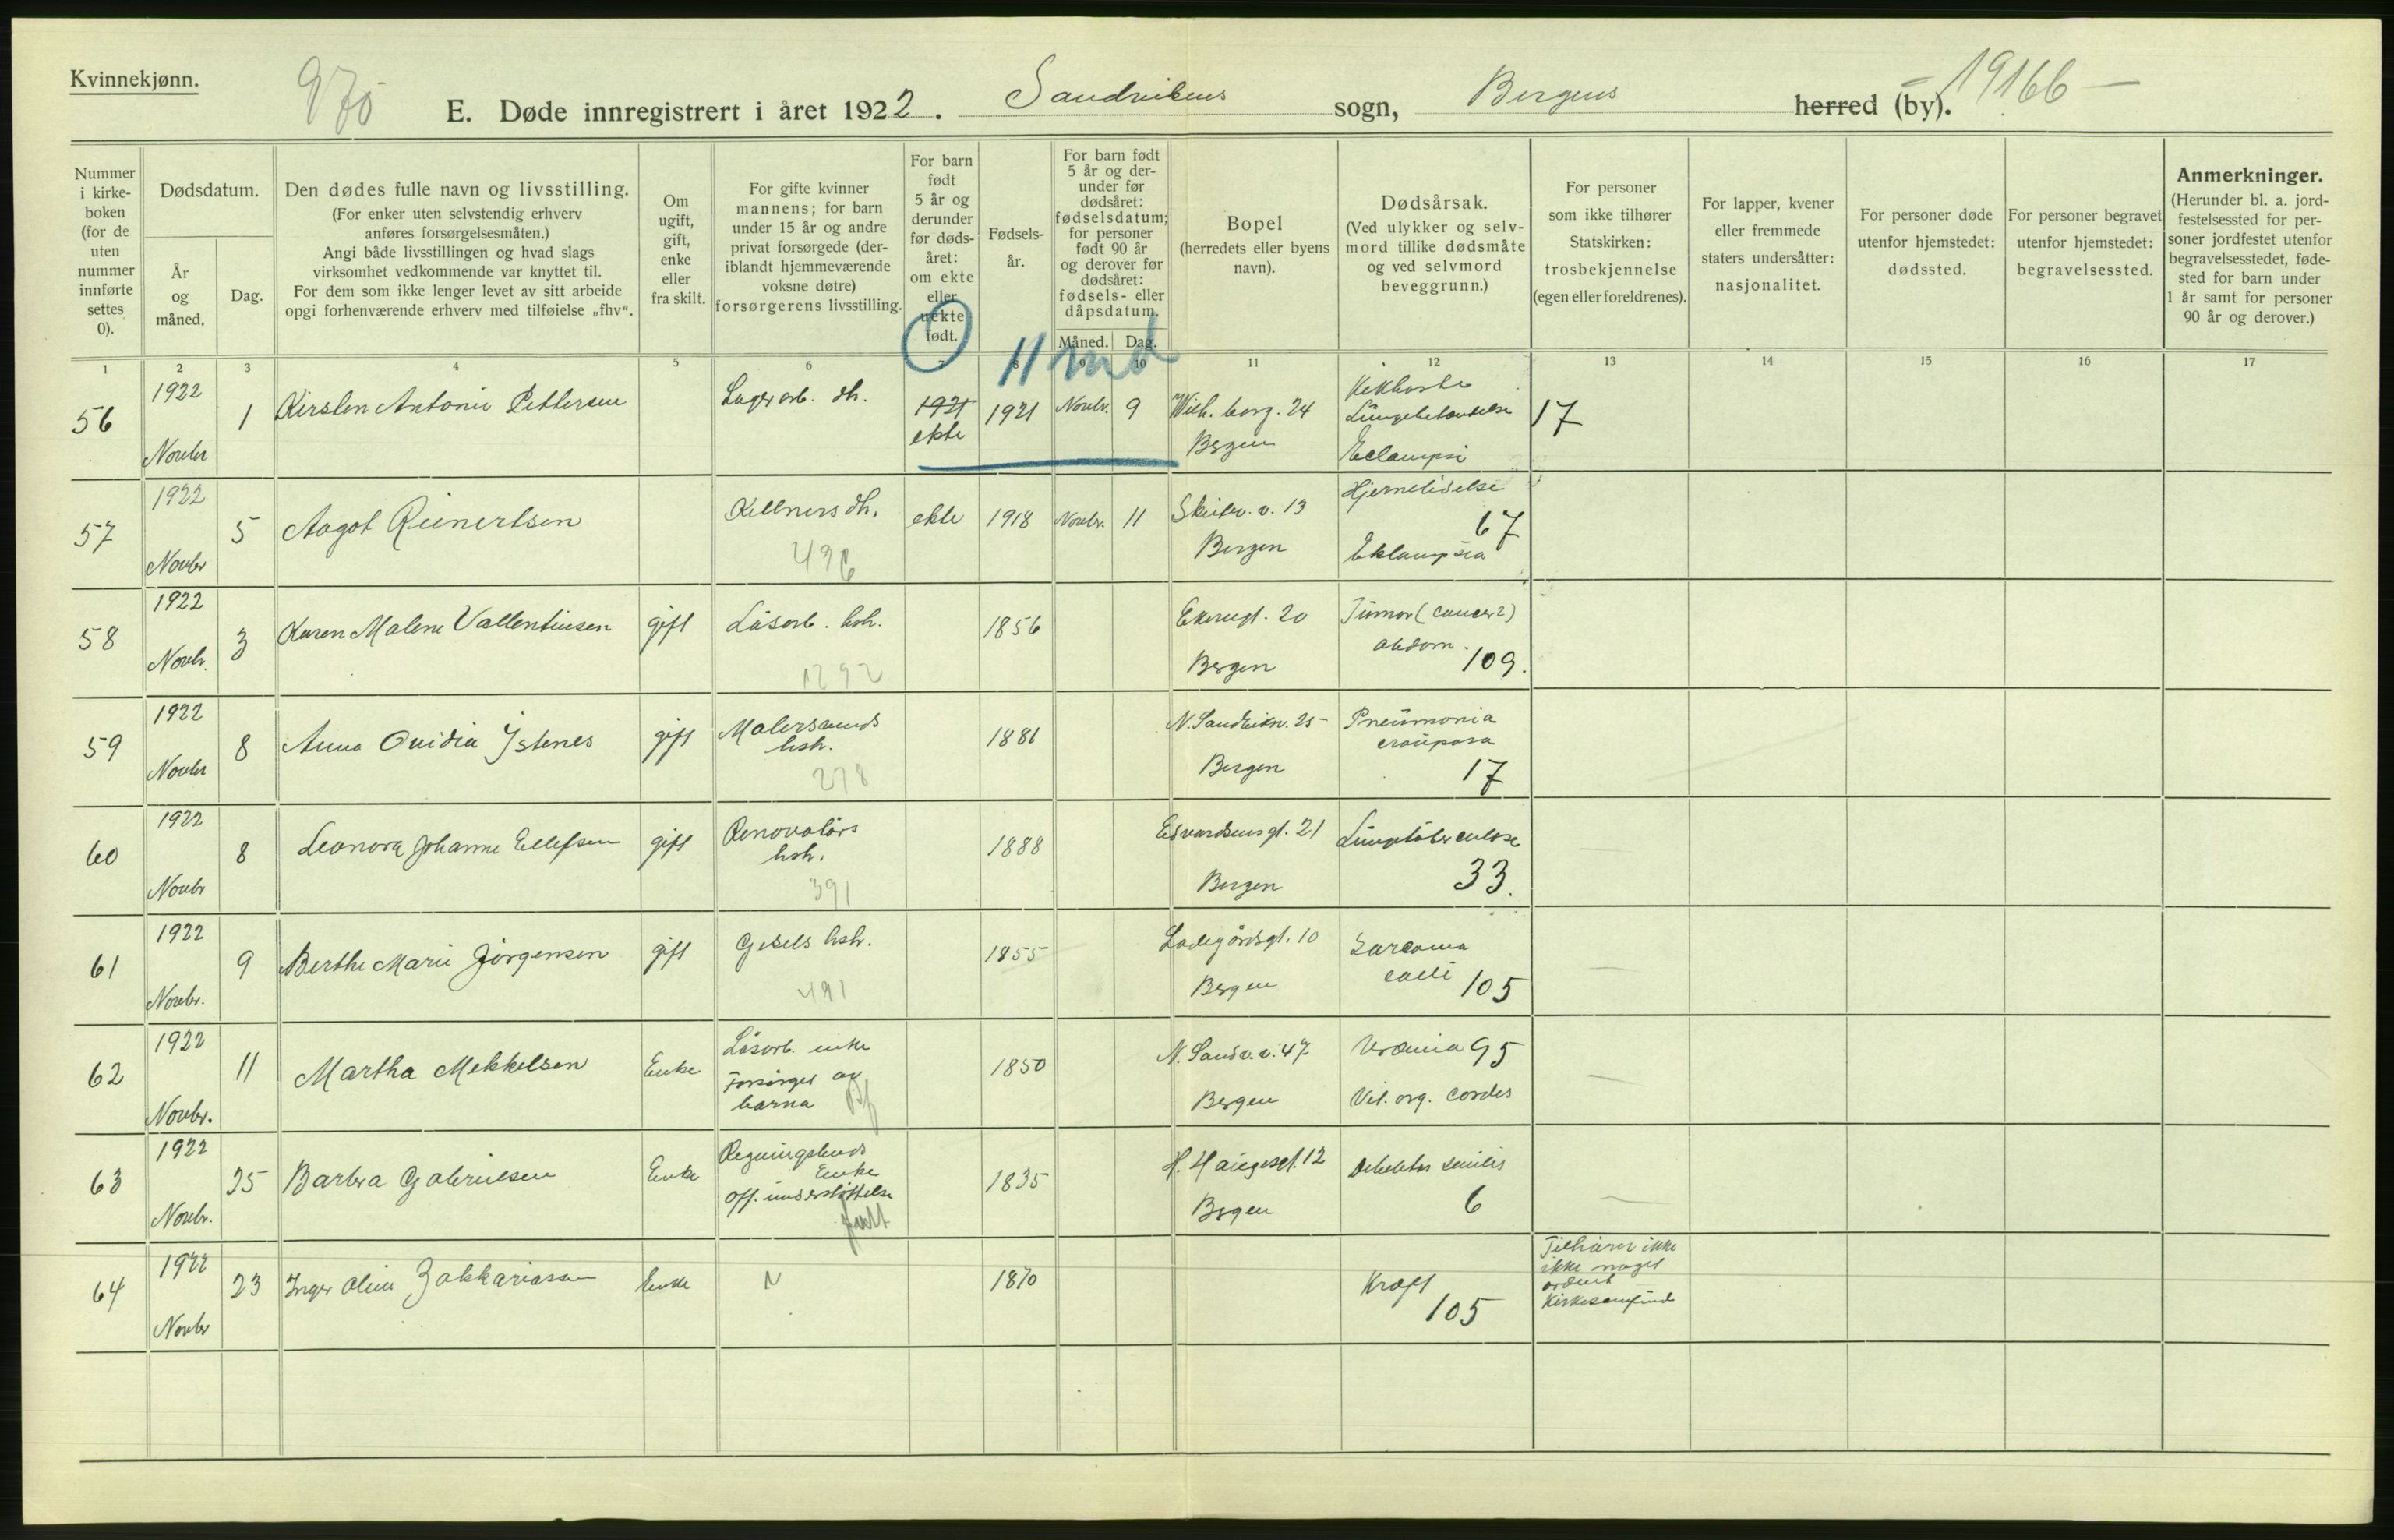 Kvinnekjønn.
970
E. Døde innregistrert i året 1922. Sandvikens sogn, Bergens herred (by).
- 19166 -
Nummer i kirke-boken (for de uten nummer innførte settes 0).
Dødsdatum.
År og måned.
Dag.
Den dødes fulle navn og livsstilling.
(For enker uten selvstendig erhverv
anføres forsørgelsesmåten.)
Angi både livsstillingen og hvad slags
virksomhet vedkommende var knyttet til.
For dem som ikke lenger levet av sitt arbeide
opgi forhenværende erhverv med tilføielse „fhv“.
Om
ugift,
gift,
enke
eller
fra skilt.
For gifte kvinner
mannens; for barn
under 15 år og andre
privat forsørgede (der-
iblandt hjemmeværende
voksne døtre)
forsørgerens livsstilling.
For barn
født
5 år og
derunder
før døds-
året:
om ekte
eller
uekte
født.
Fødsels-
år.
For barn født
5 år og der-
under før
dødsåret:
fødselsdatum;
for personer
født 90 år
og derover før
dødsåret:
fødsels- eller
dåpsdatum.
Måned. Dag.
Bopel
(herredets eller byens
navn).
Dødsårsak.
(Ved ulykker og selv-
mord tillike dødsmåte
og ved selvmord
beveggrunn.)
For personer
som ikke tilhører
Statskirken:
trosbekjennelse
(egen eller foreldrenes).
For lapper, kvener
eller fremmede
staters undersåtter:
nasjonalitet.
For personer døde
utenfor hjemstedet:
dødssted.
For personer begravet
utenfor hjemstedet:
begravelsessted.
Anmerkninger.
(Herunder bl. a. jord-
festelsessted for per-
soner jordfestet utenfor
begravelsesstedet, føde-
sted for barn under
1 år samt for personer
90 år og derover.)
1 2 3 4 5 6 7 8 9 10 11 12 13 14 15 16 17
11 md
56 1922 Novbr 1 Kirsten Antonie Pettersen Lagerarb. dh. 1921 ekte 1921 Novbr. 9 Wilh. borg. 24 Bergen Kikhoste Lungebetændelse Eclampsi 17
57 1922 Novbr 5 Aagot Reinertsen Kellners dh. 496 ekte 1918 Novbr. 11 Skutev. v. 13 Bergen Hjernelidelse 67 Eklampsia
58 1922 Novbr. 3 Karen Malene Vallentinsen gift Løsarb. hsh. 1292 1856 Ekrengt. 20 Bergen Tumor (cancer?) abdom. 109.
59 1922 Novbr 8 Anna Ovidia Istenes gift Malersvends hsh. 278 1881 N. Sandvikv. 25 Bergen Pneumonia crouposa 17
60 1922 Novbr 8 Leonora Johanne Ellefsen gift Renovatørs hsh. 391 1888 Edvardsensgt. 21 Bergen Lungetuberculose 33.
61 1922 Novbr. 9 Berthe Marie Jørgensen gift Gjesels hsh. 491 1855 Ladegårdsgt. 10 Bergen Sarcoma colli 105
62 1922 Novbr. 11 Martha Mekkelsen Enke Løsarb. enke Forsørget av barna 1850 N. Sandv. v. 47 Bergen Uræmia 95 Vit. org. cordis
63 1922 Novbr. 25 Barbra Gabrielsen Enke Regningsbuds Enke Off. understøttelse 1835 H. Haugesgt. 12 Bergen Debilitas senilis 6
64 1922 Novbr 23 Inger Oline Zakkariassen Enke 1870 Kræft 105 Tilhører ikke ikke noget ordnet Kirkesamfund